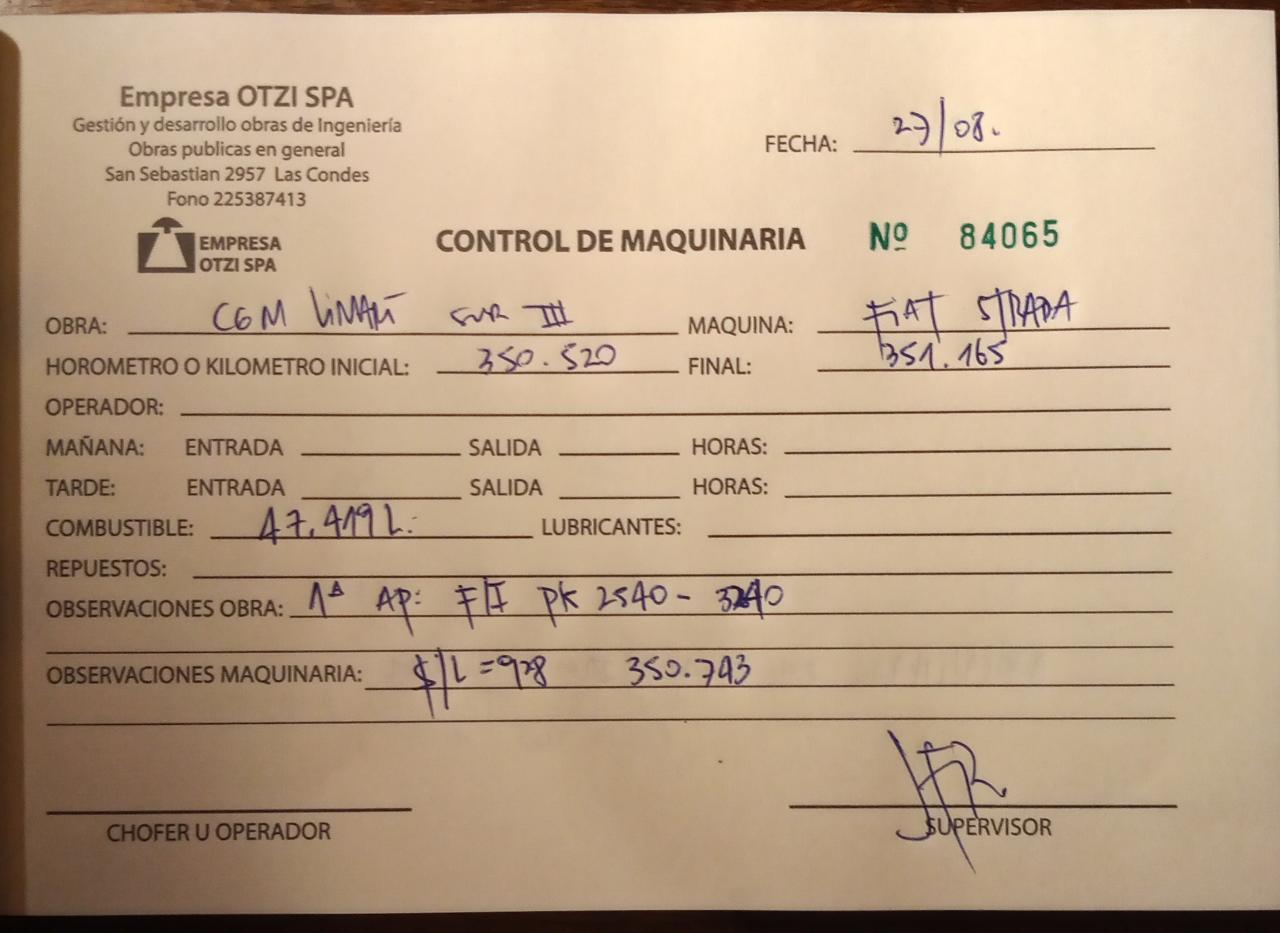 Empresa OTZI SPA
Gestión y desarrollo obras de Ingeniería
Obras publicas en general
San Sebastian 2957 Las Condes
Fono 225387413
EMPRESA
OTZI SPA
FECHA: 27/08.
CONTROL DE MAQUINARIA Nº 84065
OBRA: CGM LiMARÍ SUR III MAQUINA: FIAT STRADA
HOROMETRO O KILOMETRO INICIAL: 350.520 FINAL: 351.165
OPERADOR:
MAÑANA: ENTRADA SALIDA HORAS:
TARDE: ENTRADA SALIDA HORAS:
COMBUSTIBLE: 47.419 L. LUBRICANTES:
REPUESTOS:
OBSERVACIONES OBRA: 1ª AP: F/I PK 2540 - 3240
OBSERVACIONES MAQUINARIA: $/L = 928 350.743
CHOFER U OPERADOR SUPERVISOR